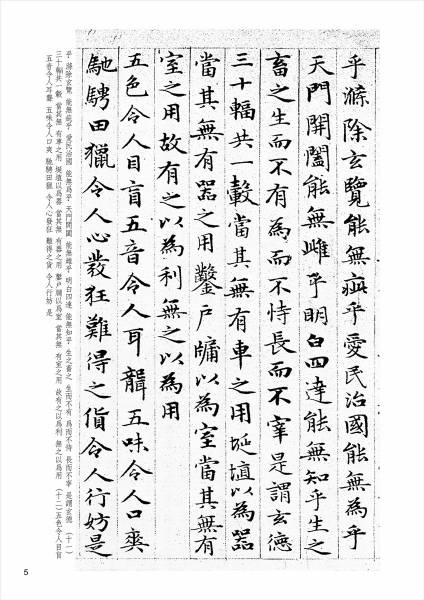 乎滌除玄覽能無疵乎愛民治國能無為乎
天門開闔能無雌乎明白四達能無知乎生之
畜之生而不有為而不恃長而不宰是謂玄德
三十輻共一轂當其無有車之用埏埴以為器
當其無有器之用鑿戶牖以為室當其無有
室之用故有之以為利無之以為用
五色令人目盲五音令人耳聾五味令人口爽
馳騁田獵令人心發狂難得之貨令人行妨是
乎 滌除玄覽 能無疵乎 愛民治國 能無為乎 天門開闔 能無雌乎 明白四達 能無知乎 生之畜之 生而不有 為而不恃 長而不宰 是謂玄德 (十一)
三十輻共一轂 當其無 有車之用 埏埴以為器 當其無 有器之用 鑿戶牖以為室 當其無 有室之用 故有之以為利 無之以為用 (十二)五色令人目盲
五音令人耳聾 五味令人口爽 馳騁田獵 令人心發狂 難得之貨 令人行妨 是
5